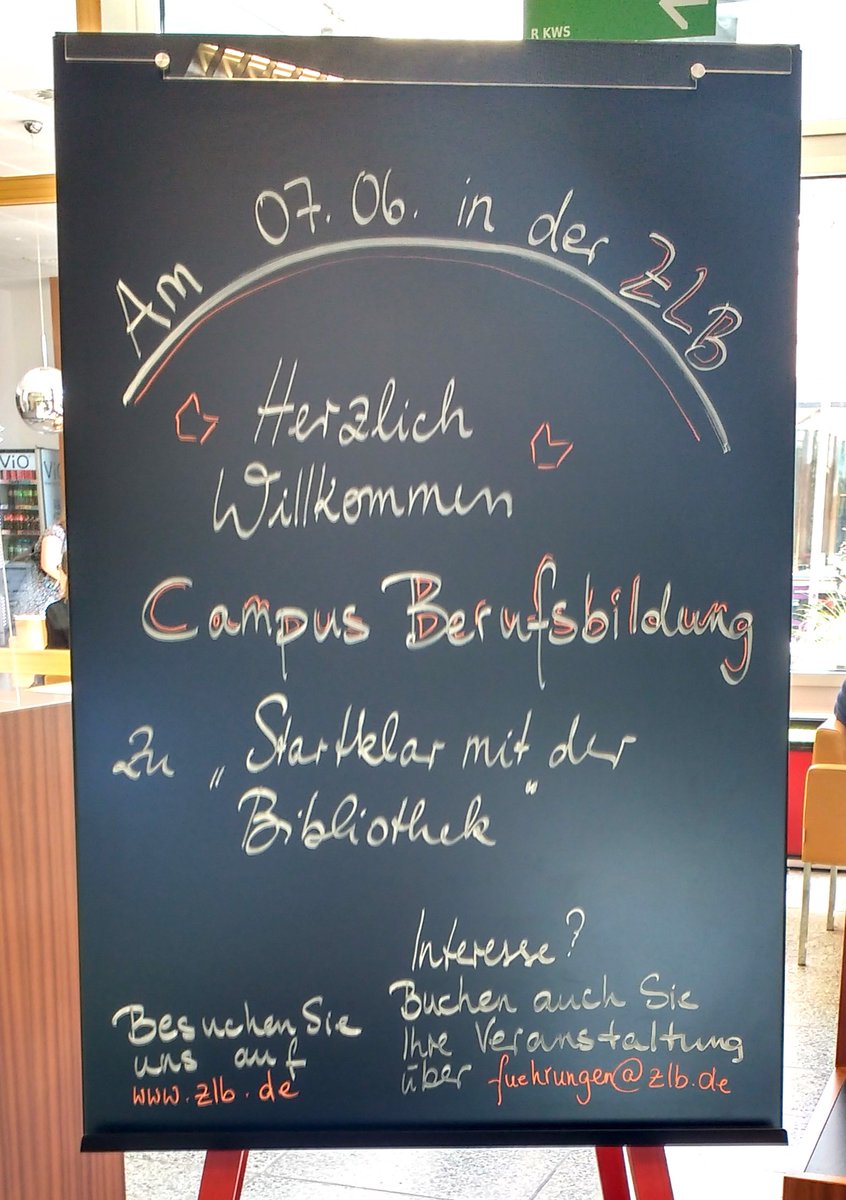 R KWS
Am 07.06. in der ZLB
Herzlich
Willkommen
Campus Berufsbildung
Zu „Startklar mit der
Bibliothek"
Interesse?
Buchen auch Sie
Ihre Veranstaltung
über fuehrungen@zlb.de
Besuchen Sie
uns auf
www.zlb.de
ViO